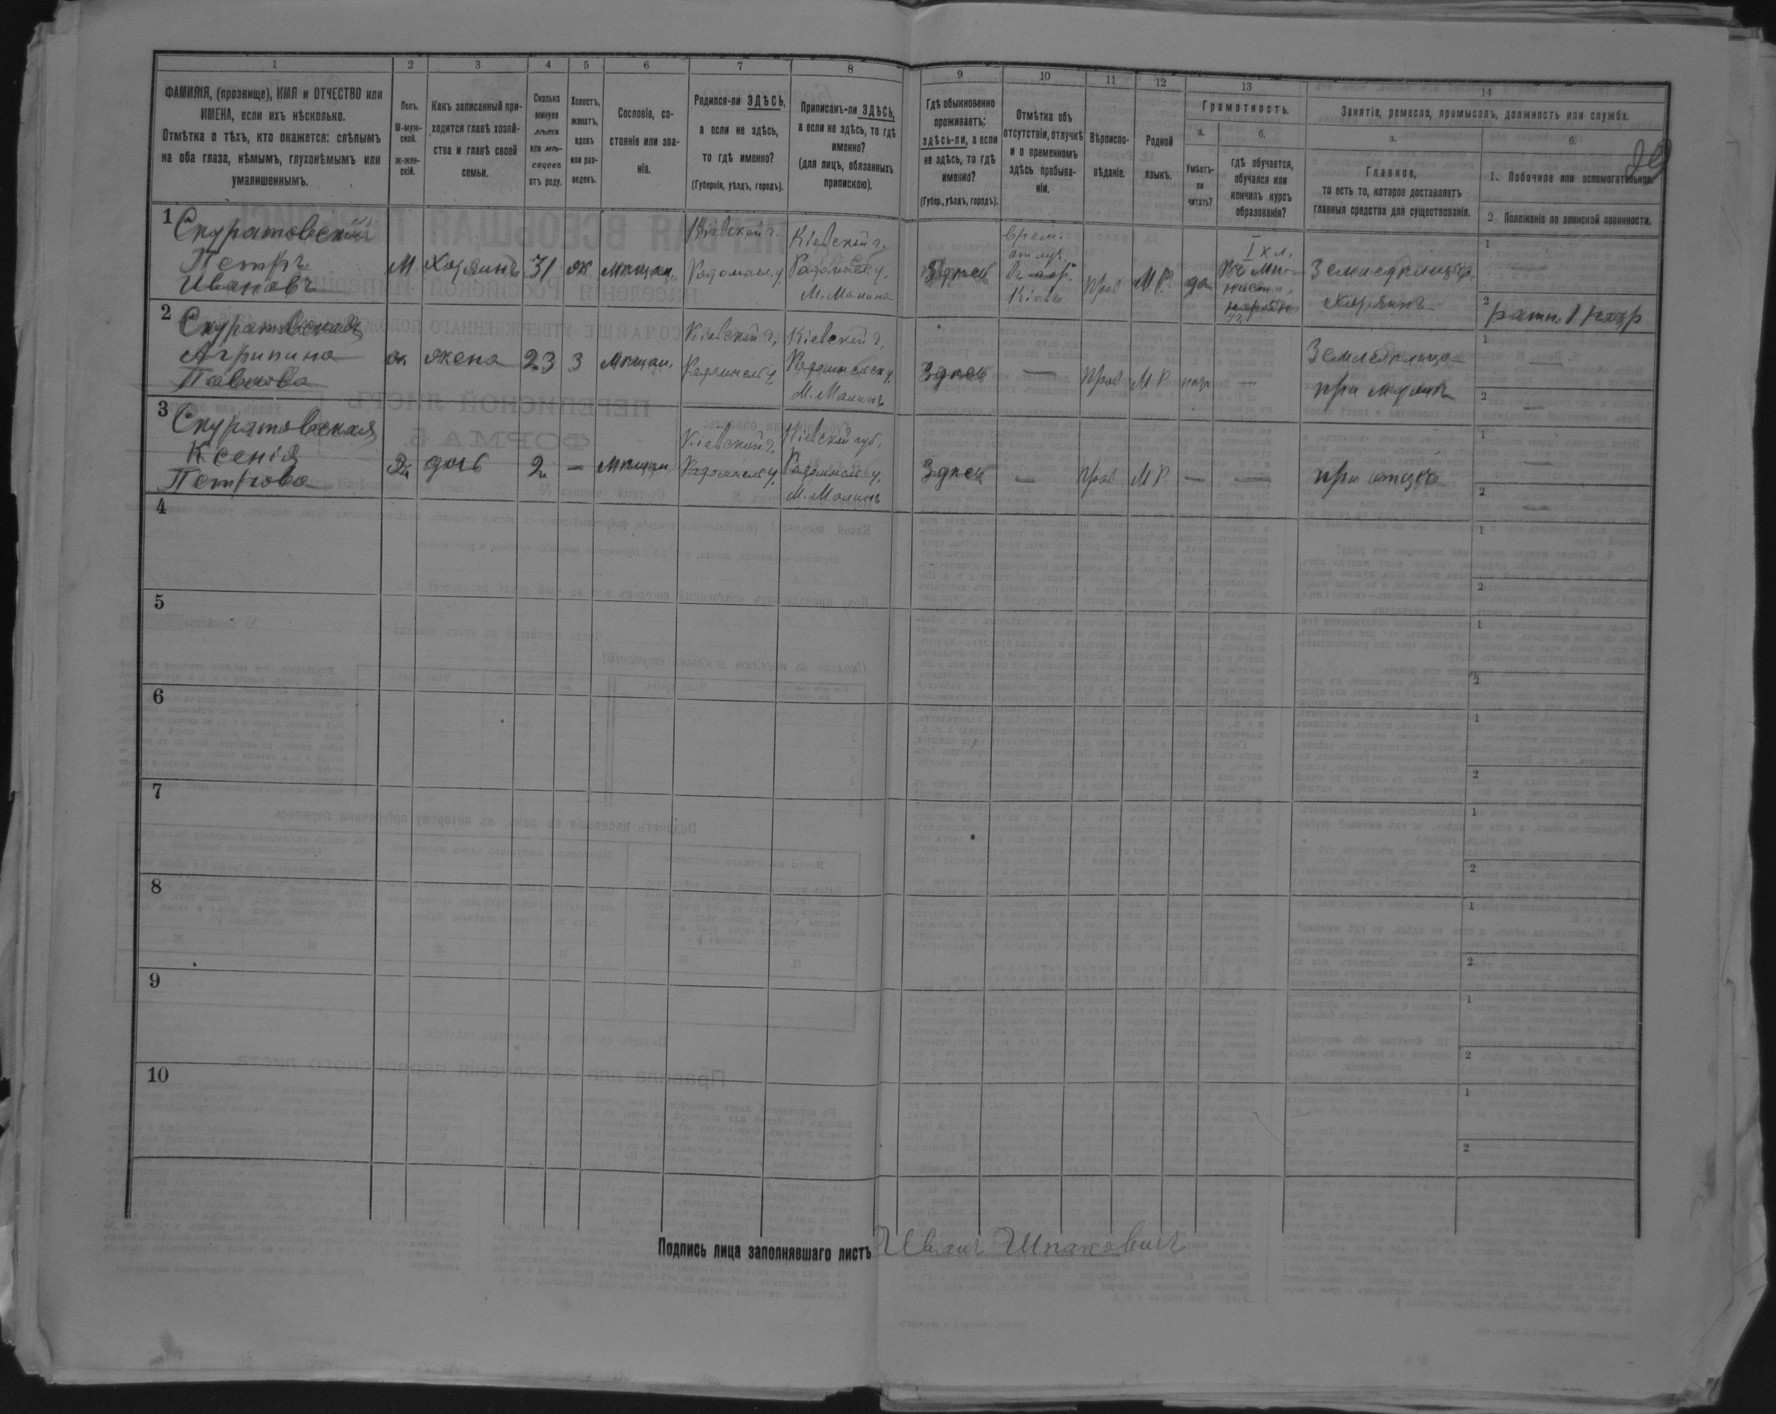 1
2
3
4
5
6
7
8
9
10
11
12
13
14
ФАМИЛІЯ, (прозвище), ИМЯ и ОТЧЕСТВО или
ИМЕНА, если ихъ нѣсколько.
Отмѣтка о тѣхъ, кто окажется: слѣпымъ
на оба глаза, нѣмымъ, глухонѣмымъ или
умалишеннымъ.
Полъ.
М-муж-
ской.
ж-жен-
скій.
Какъ записанный при-
ходится главѣ хозяй-
ства и главѣ своей
семьи.
Сколько
минуло
лѣтъ
или мѣ-
сяцевъ
отъ роду.
Холостъ,
женатъ,
вдовъ
или раз-
веденъ.
Сословіе, со-
стояніе или зва-
ніе.
Родился-ли ЗДѢСЬ,
а если не здѣсь,
то гдѣ именно?
(Губернія, уѣздъ, городъ).
Приписанъ-ли ЗДѢСЬ,
а если не здѣсь, то гдѣ
именно?
(для лицъ, обязанныхъ
припискою).
Гдѣ обыкновенно
проживаетъ:
здѣсь-ли, а если
не здѣсь, то гдѣ
именно?
(Губер., уѣздъ, городъ).
Отмѣтка объ
отсутствіи, отлучкѣ
и о временномъ
здѣсь пребыва-
ніи.
Вѣроиспо-
вѣданіе.
Родной
языкъ.
Грамотность.
а.
Умѣетъ-
ли
читать?
б.
гдѣ обучается,
обучался или
кончилъ курсъ
образованія?
Занятіе, ремесло, промыселъ, должность или служба.
а.
Главное,
то есть то, которое доставляетъ
главныя средства для существованія.
б.
1. Побочное или вспомогательное.
2. Положеніе по воинской повинности.
1
Скуратовскій
Петръ
Ивановъ
М
хозяинъ
31
ж
мѣщан.
Кіевской г.
Радомысл. у.
Кіевской г.
Радомысл. у.
М. Малина
Здѣсь
врем.
отлуч.
Кіевъ
Прав
М Р.
да
I кл.
Земледѣлецъ
хозяинъ
1
2
ратн. 1 разр
2
Скуратовская
Агрипина
Павлова
ж
жена
23
З
мѣщан.
Кіевской г.
Радомысл. у.
Кіевской г.
Радомысльск. у.
М. Малинъ
Здѣсь
—
Прав
М Р.
нѣт
—
Земледѣлица
при мужѣ
1
2
—
3
Скуратовская
Ксенія
Петрова
Ж
дочь
2
—
мѣщан.
Кіевской г.
Радомысл. у.
Кіевской губ.
Радомысл. у.
М. Малинъ
Здѣсь
—
Прав
М Р.
—
—
при отцѣ
1
—
2
—
4
1
2
5
1
2
6
1
2
7
1
2
8
1
2
9
1
2
10
1
2
Подпись лица заполнявшаго листъ Иванъ Шпаковичъ